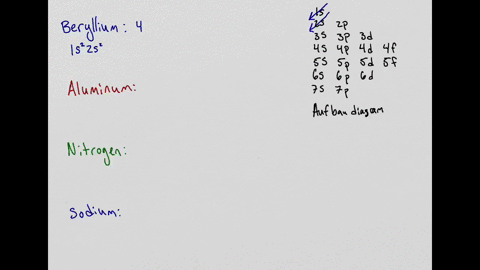 Beryllium: 4
1s² 2s²
Aluminum:
Nitrogen:
Sodium:
1s
2s 2p
3s 3p 3d
4s 4p 4d 4f
5s 5p 5d 5f
6s 6p 6d
7s 7p
Aufbau diagram